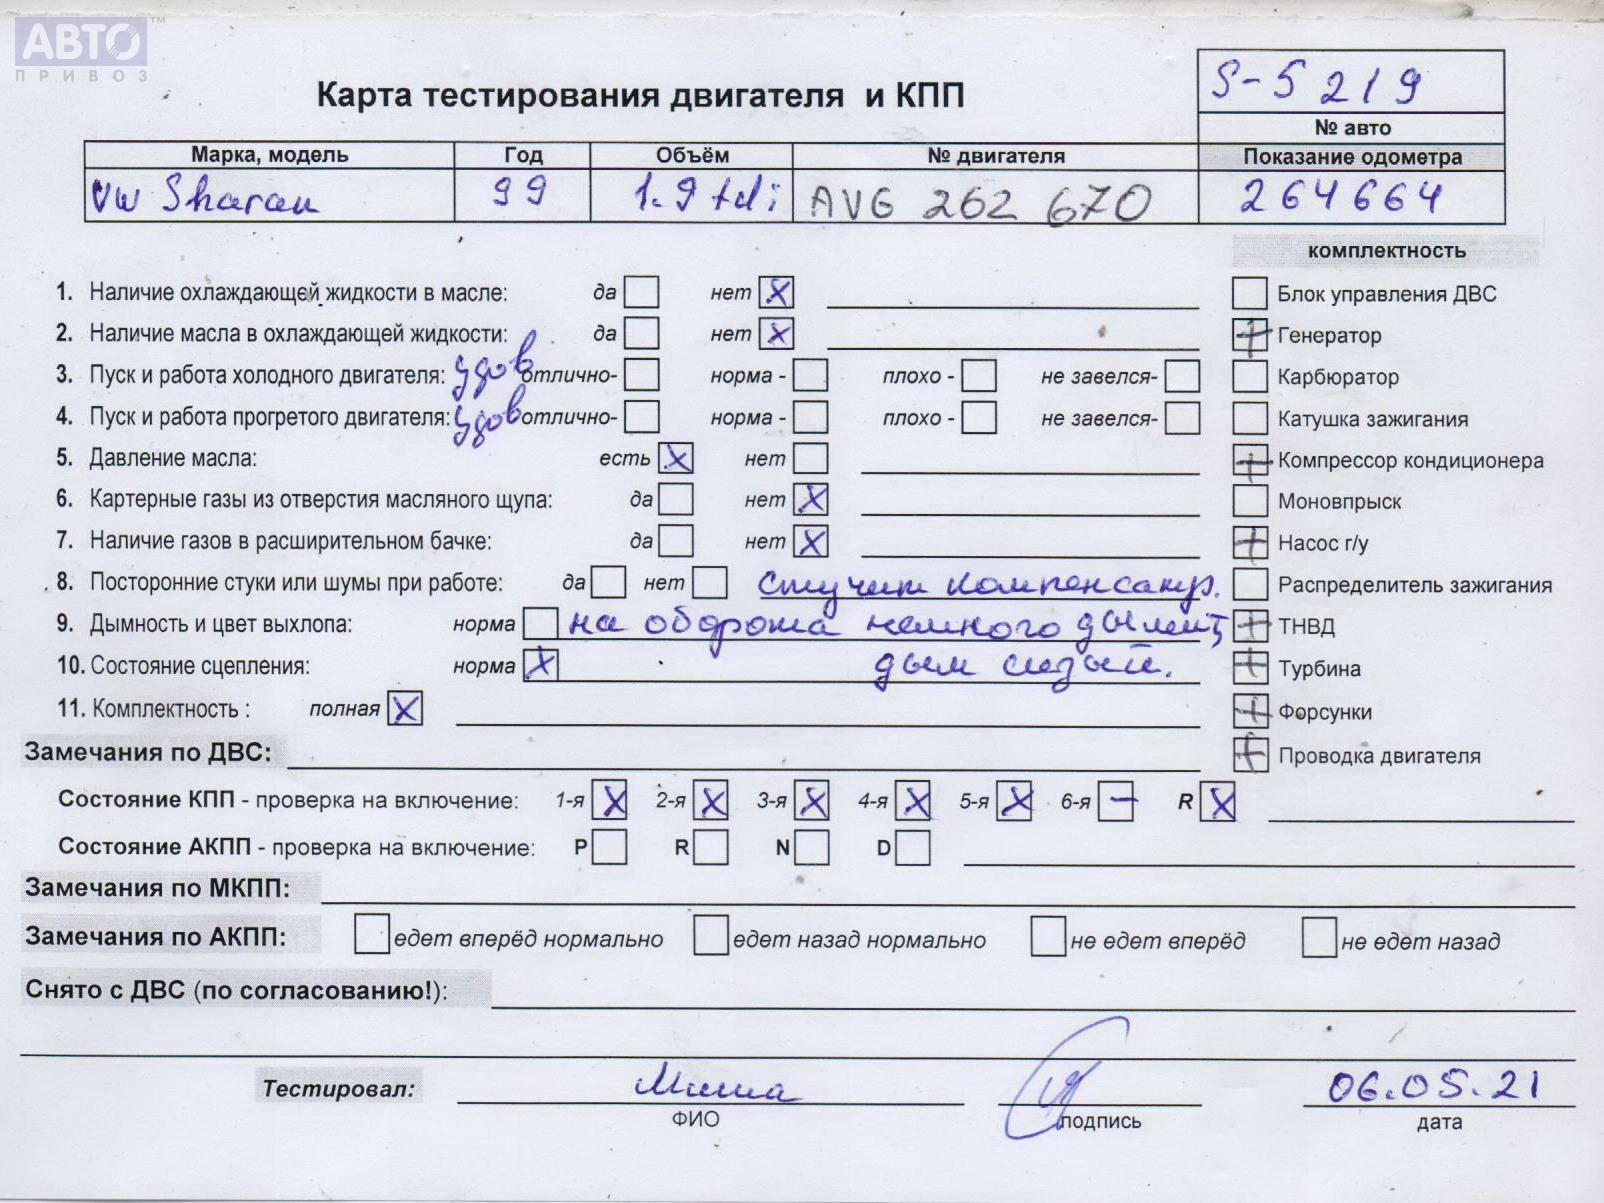 АВТО™
ПРИВОЗ
S-5219
Карта тестирования двигателя и КПП
№ авто
Марка, модель Год Объём № двигателя Показание одометра
VW Sharan 99 1.9 tdi AVG 262 670 264664
комплектность
1. Наличие охлаждающей жидкости в масле: да нет X Блок управления ДВС
2. Наличие масла в охлаждающей жидкости: да нет X + Генератор
3. Пуск и работа холодного двигателя: удов отлично- норма - плохо - не завелся- Карбюратор
4. Пуск и работа прогретого двигателя: удов отлично- норма - плохо - не завелся- Катушка зажигания
5. Давление масла: есть X нет + Компрессор кондиционера
6. Картерные газы из отверстия масляного щупа: да нет X Моновпрыск
7. Наличие газов в расширительном бачке: да нет X + Насос г/у
8. Посторонние стуки или шумы при работе: да нет стучит компенсатор. Распределитель зажигания
9. Дымность и цвет выхлопа: норма на оборота немного дымит, + ТНВД
10. Состояние сцепления: норма X дым сизый. + Турбина
11. Комплектность : полная X + Форсунки
Замечания по ДВС: + Проводка двигателя
Состояние КПП - проверка на включение: 1-я X 2-я X 3-я X 4-я X 5-я X 6-я – R X
Состояние АКПП - проверка на включение: P R N D
Замечания по МКПП:
Замечания по АКПП: едет вперёд нормально едет назад нормально не едет вперёд не едет назад
Снято с ДВС (по согласованию!):
Тестировал: Миша 06.05.21
ФИО подпись дата